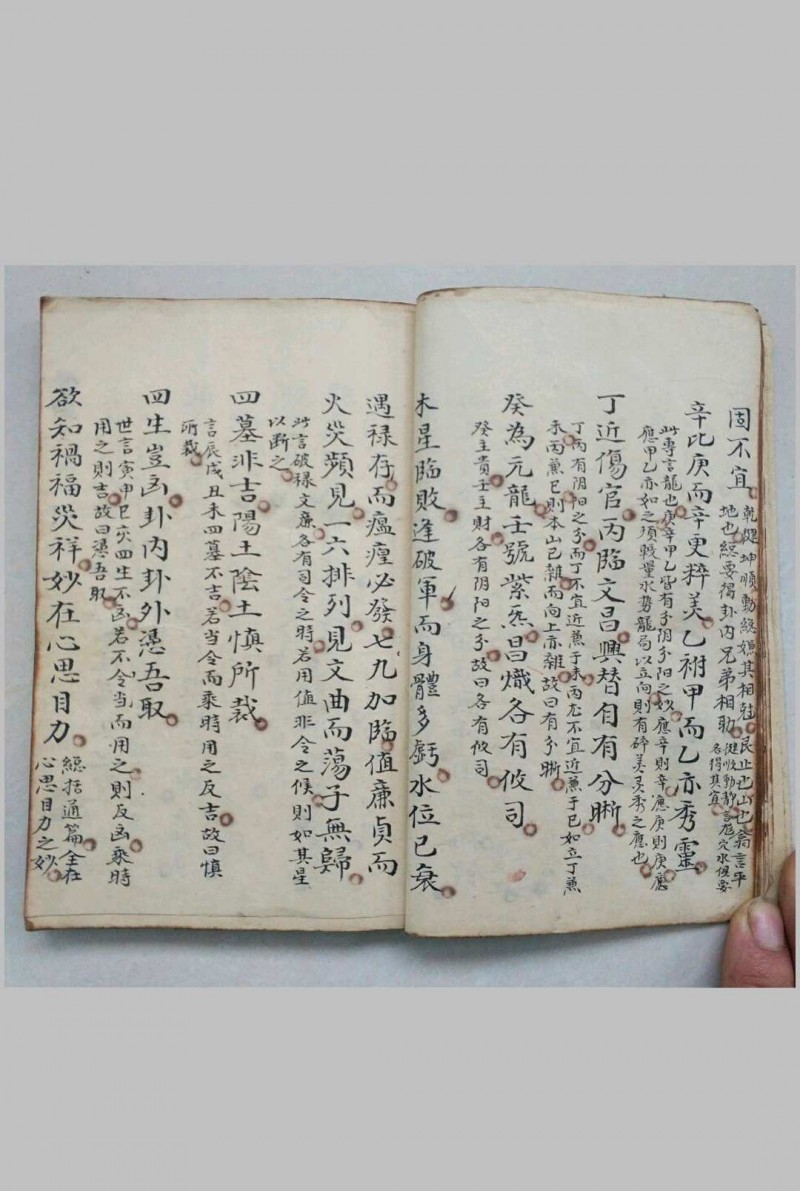 固不宜
乾健坤順動總嫌其相尅艮止也山也翕言平
地也總要得卦內兄弟相助
各得其宜
辛比庚而辛更粹美乙祔甲而乙亦秀靈
此專言龍也庚辛甲乙皆有分陰分陽之妙應辛則辛應庚則庚應
應甲乙亦如之須較量水勢龍局以立向則有碎美灵秀之應也
丁近傷官丙臨文昌興替自有分晰
丁丙有阴阳之分而丁不宜近兼于未丙尤不宜近兼于巳如立丁兼
未丙兼巳則本山已雜而向上亦雜故曰有分晰
癸為元龍壬號紫炁昌熾各有攸司
癸主貴壬主財各有阴阳之分故曰各有攸司
木星臨敗逢破軍而身體多虧水位已衰
遇祿存而瘟㾮必發七九加臨值廉貞而
火災頻見一六排列見文曲而蕩子無歸
此言破祿文廉各有司令之時若用值非令之候則如其星
以斷之
四墓非吉陽土陰土慎所裁
言辰戌丑未四墓不吉若当令而乘時用之反吉故曰慎
所裁
四生豈凶卦內卦外憑吾取
世言寅申巳亥四生不凶若不令当而用之則反凶乘時
用之則吉故曰憑吾取
欲知禍福災祥妙在心思目力
總括通篇全在
心思目力之妙